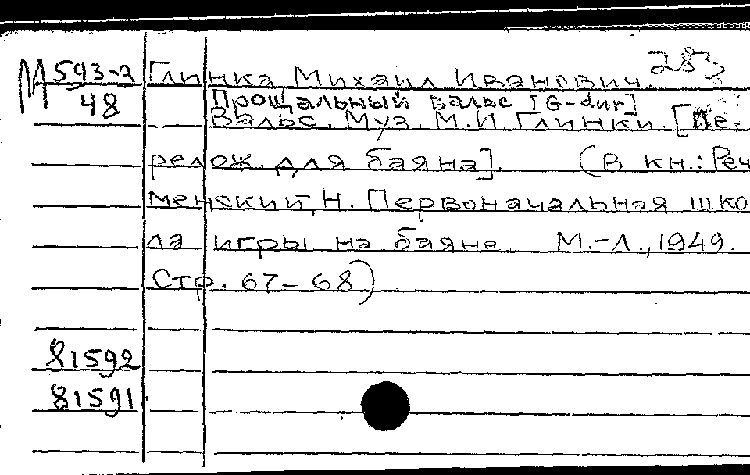 М 593-2 Глинка Михаил Иванович. 283
48 Прощальный вальс [G-dur]
Вальс. Муз. М.И. Глинки. [Пе-
релож. для баяна]. (В кн.: Реч
менский, Н. Первоначальная шко
ла игры на баяне. М.-Л., 1949.
Стр. 67-68)
81592
81591